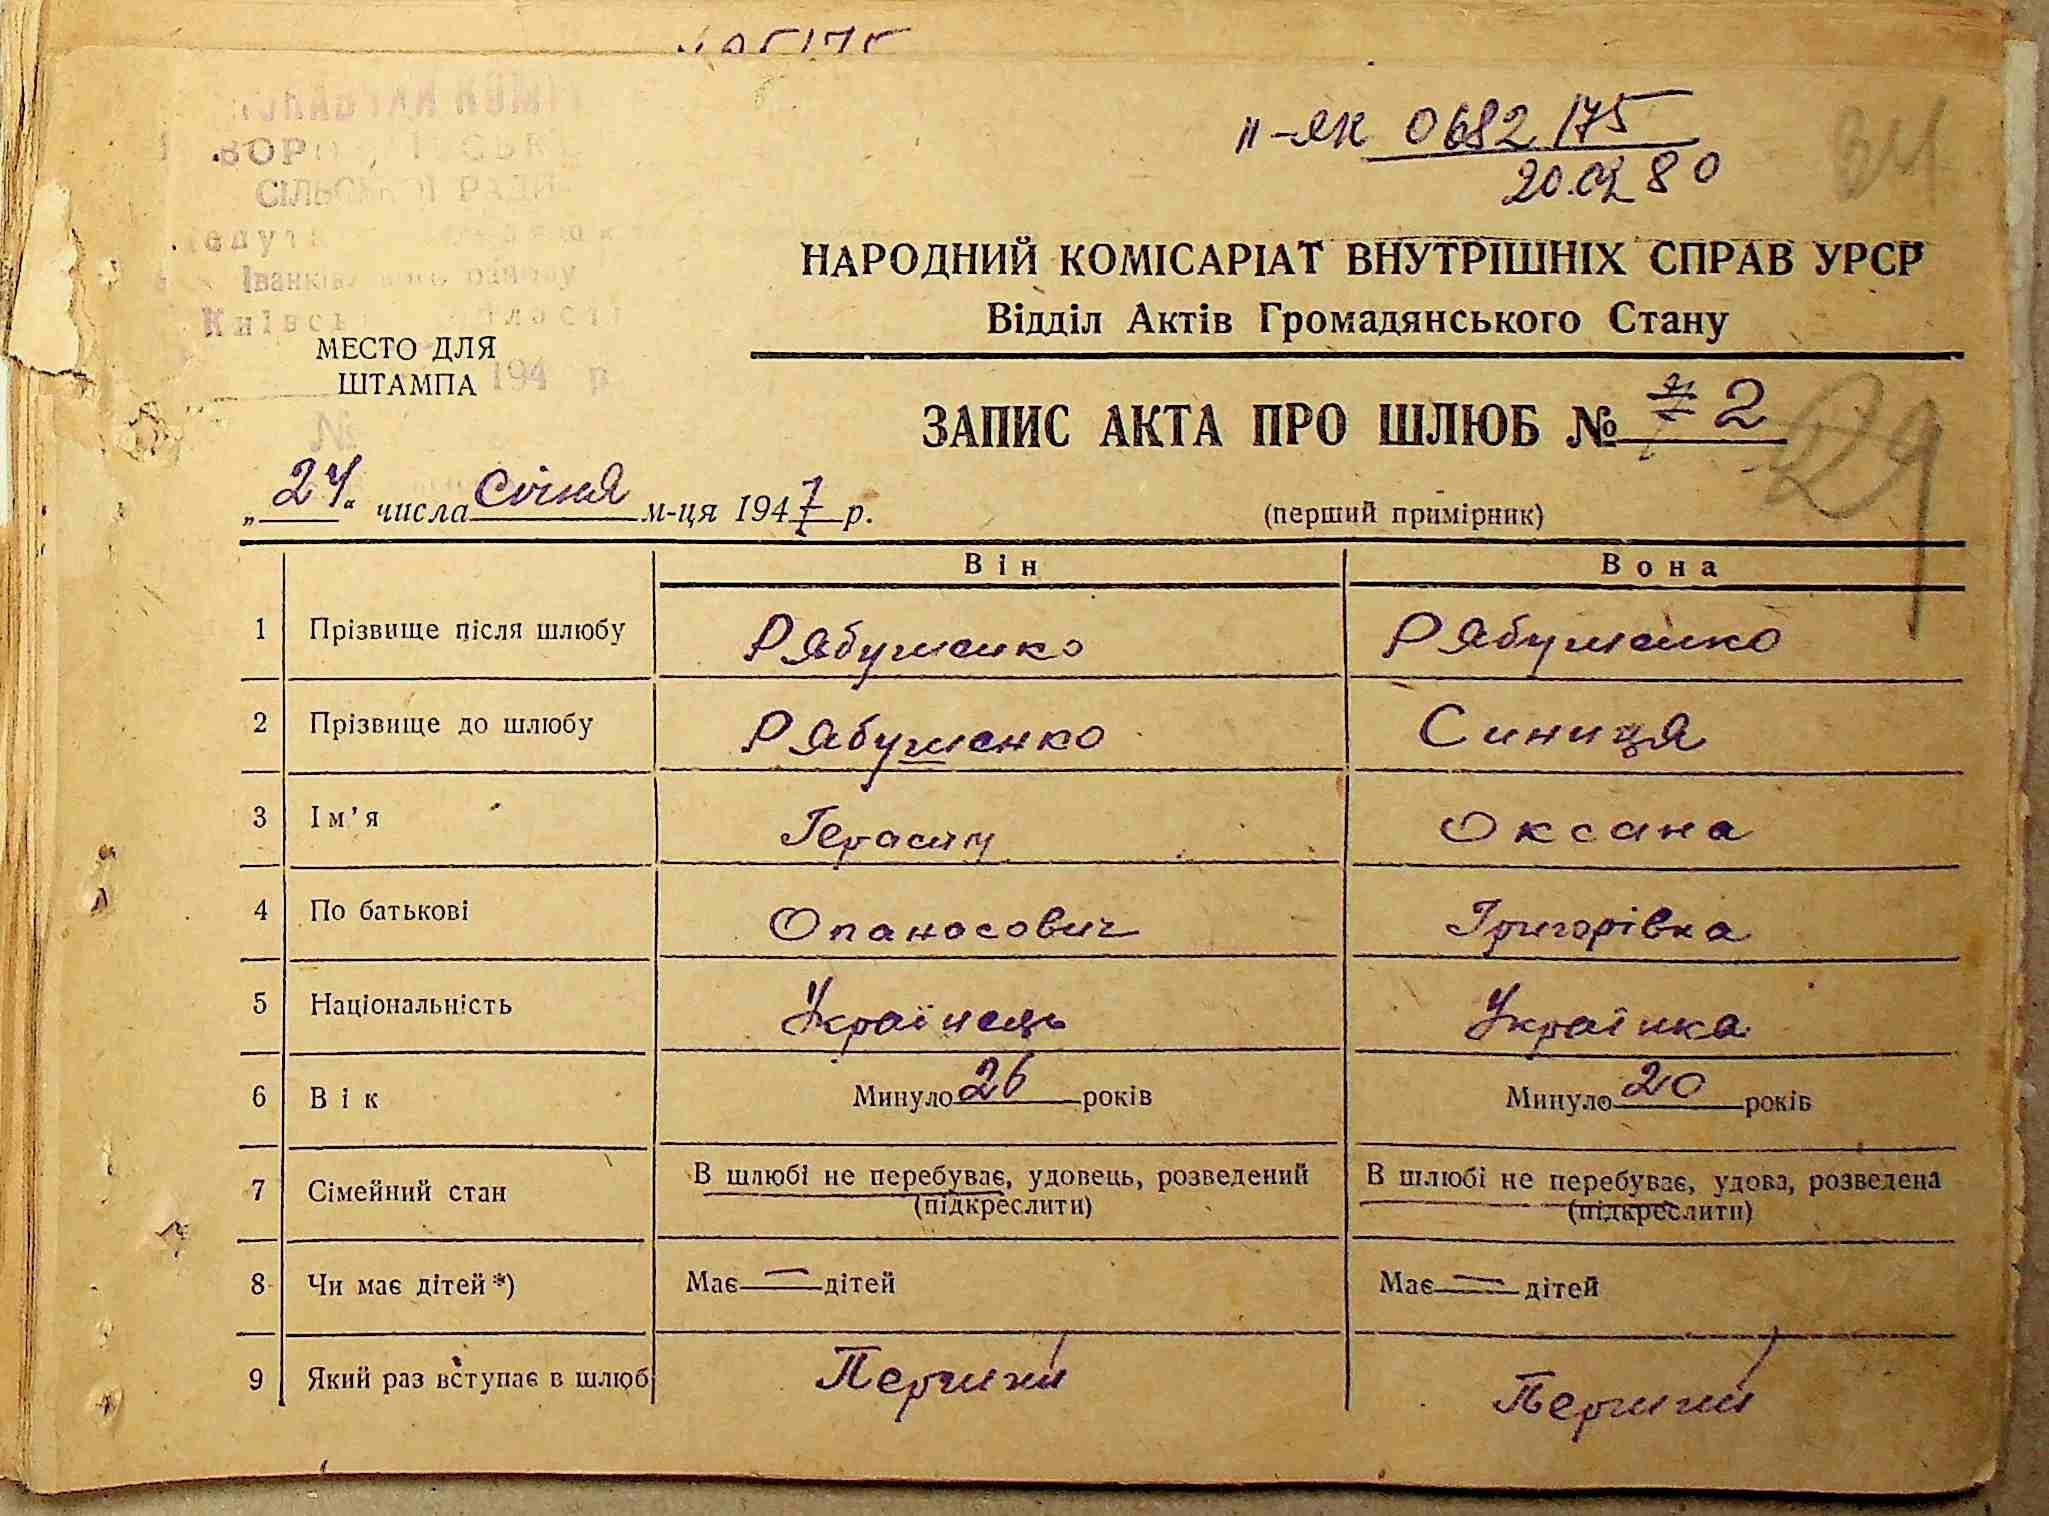 II-ЯК 0682175
20.02 80
СІЛЬСЬКОЇ РАДИ
НАРОДНИЙ КОМІСАРІАТ ВНУТРІШНІХ СПРАВ УРСР
Відділ Актів Громадянського Стану
МЕСТО ДЛЯ
ШТАМПА
194 р
№
ЗАПИС АКТА ПРО ШЛЮБ № 2
29
„24“ числа січня м-ця 1947 р.
(перший примірник)
Він Вона
1 Прізвище після шлюбу Рябушенко Рябушенко
2 Прізвище до шлюбу Рябушенко Синиця
3 Ім'я Герасим Оксана
4 По батькові Опанасович Григорівна
5 Національність Українець Українка
6 Вік Минуло 26 років Минуло 20 років
7 Сімейний стан В шлюбі не перебуває, удовець, розведений В шлюбі не перебуває, удова, розведена
(підкреслити) (підкреслити)
8 Чи має дітей *) Має — дітей Має — дітей
9 Який раз вступає в шлюб Перший Перший